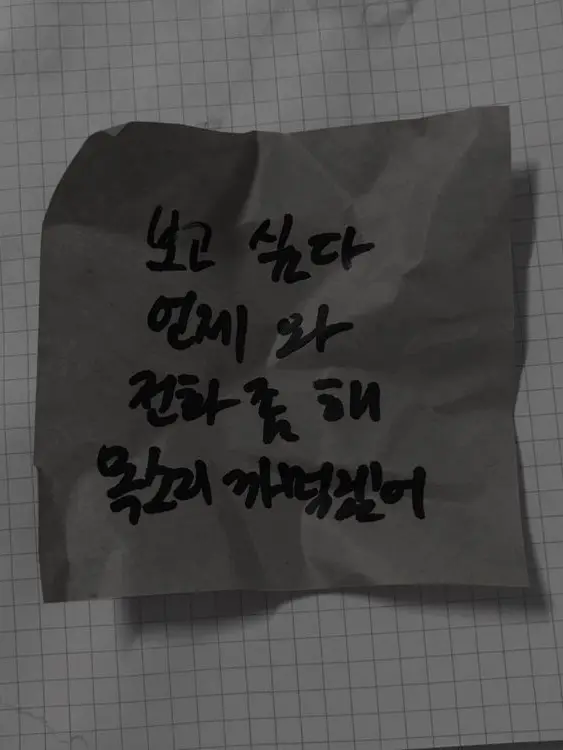 보고 싶다
언제 와
전화 좀 해
목소리 까먹겠어